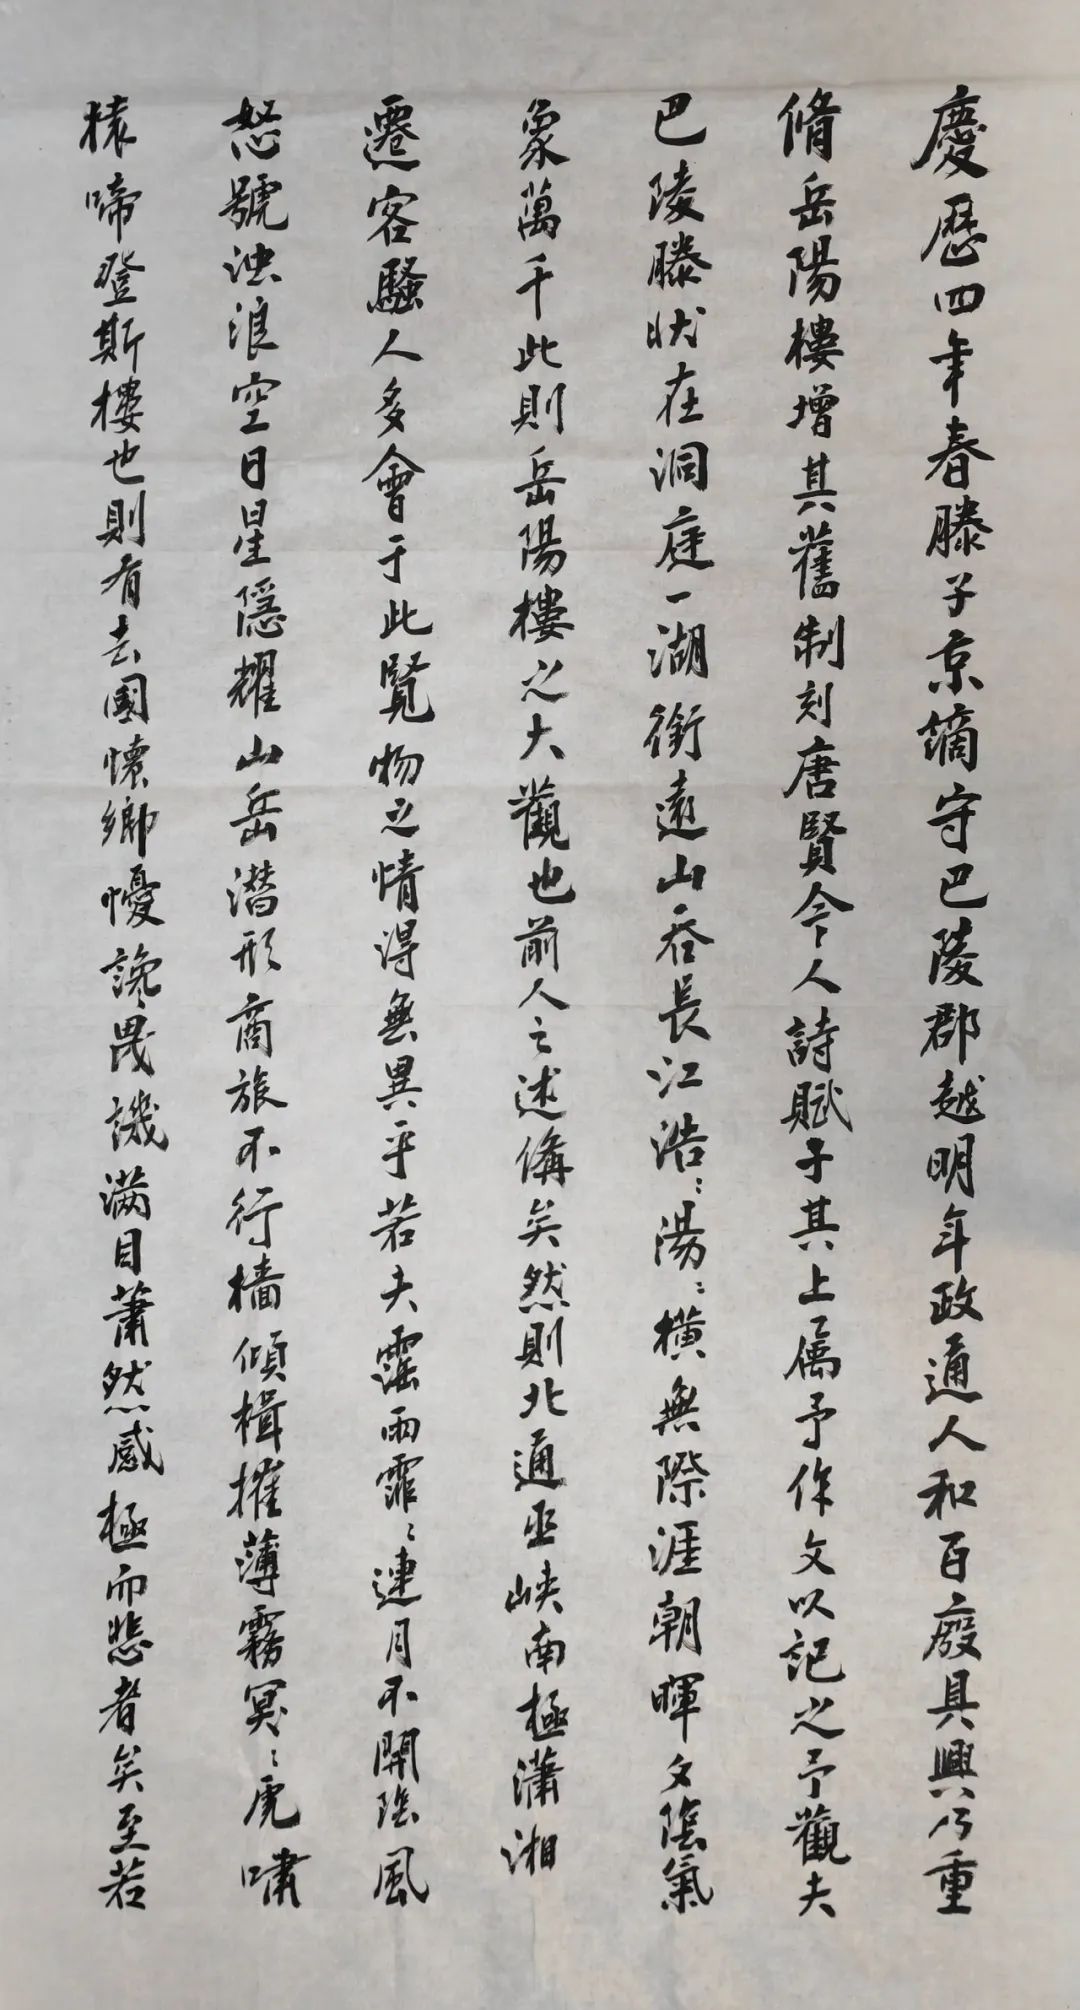 慶歷四年春滕子京謫守巴陵郡越明年政通人和百廢具興乃重
脩岳陽樓增其舊制刻唐賢今人詩賦于其上属予作文以記之予觀夫
巴陵滕狀在洞庭一湖銜遠山吞長江浩〻湯〻橫無際涯朝暉夕陰氣
象萬千此則岳陽樓之大觀也前人之述偹矣然則北通巫峽南極瀟湘
遷客騷人多會于此覽物之情得無異乎若夫霪雨霏〻連月不開陰風
怒號浊浪空日星隱耀山岳潜形商旅不行檣傾楫摧薄霧冥〻虎嘯
猿啼登斯樓也則有去國懷鄉懮讒畏譏滿目蕭然感極而悲者矣至若